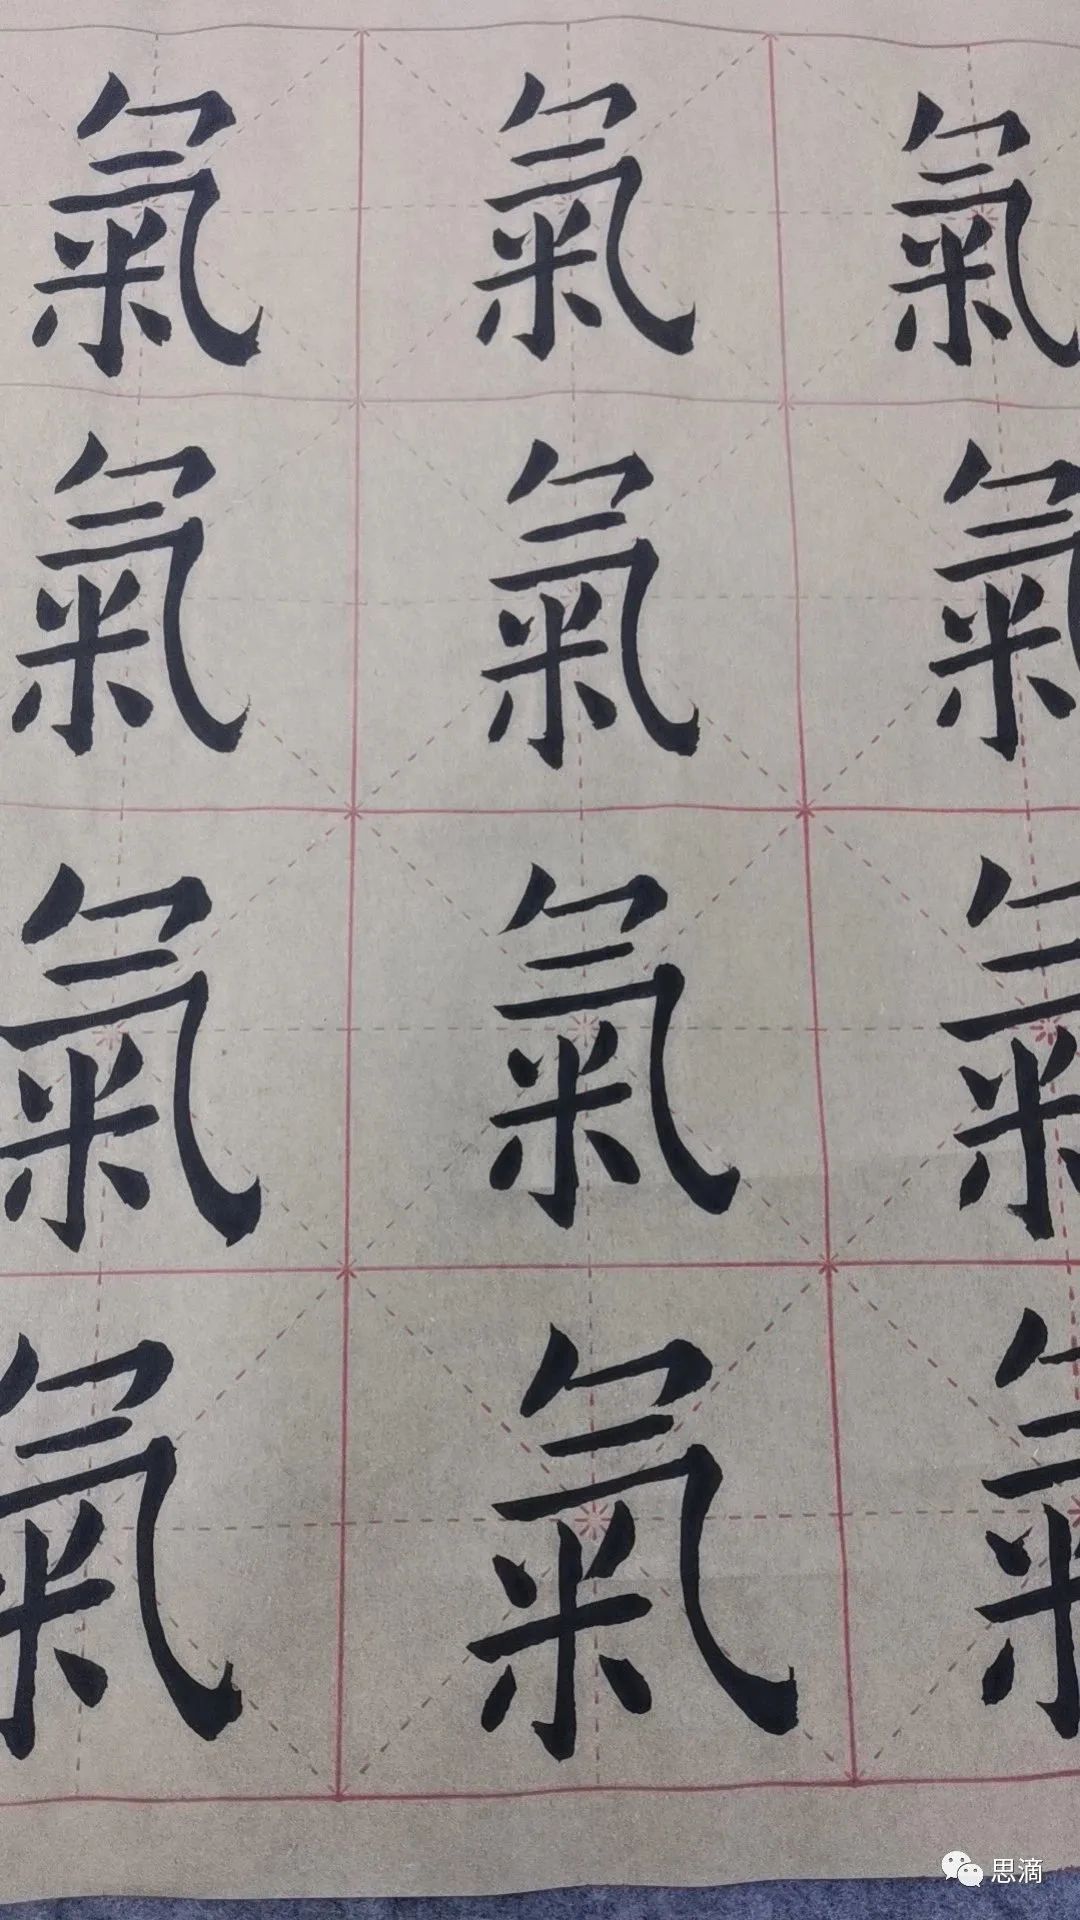 氣 氣 氣
氣 氣 氣
氣 氣 氣
氣 氣 氣
思滴